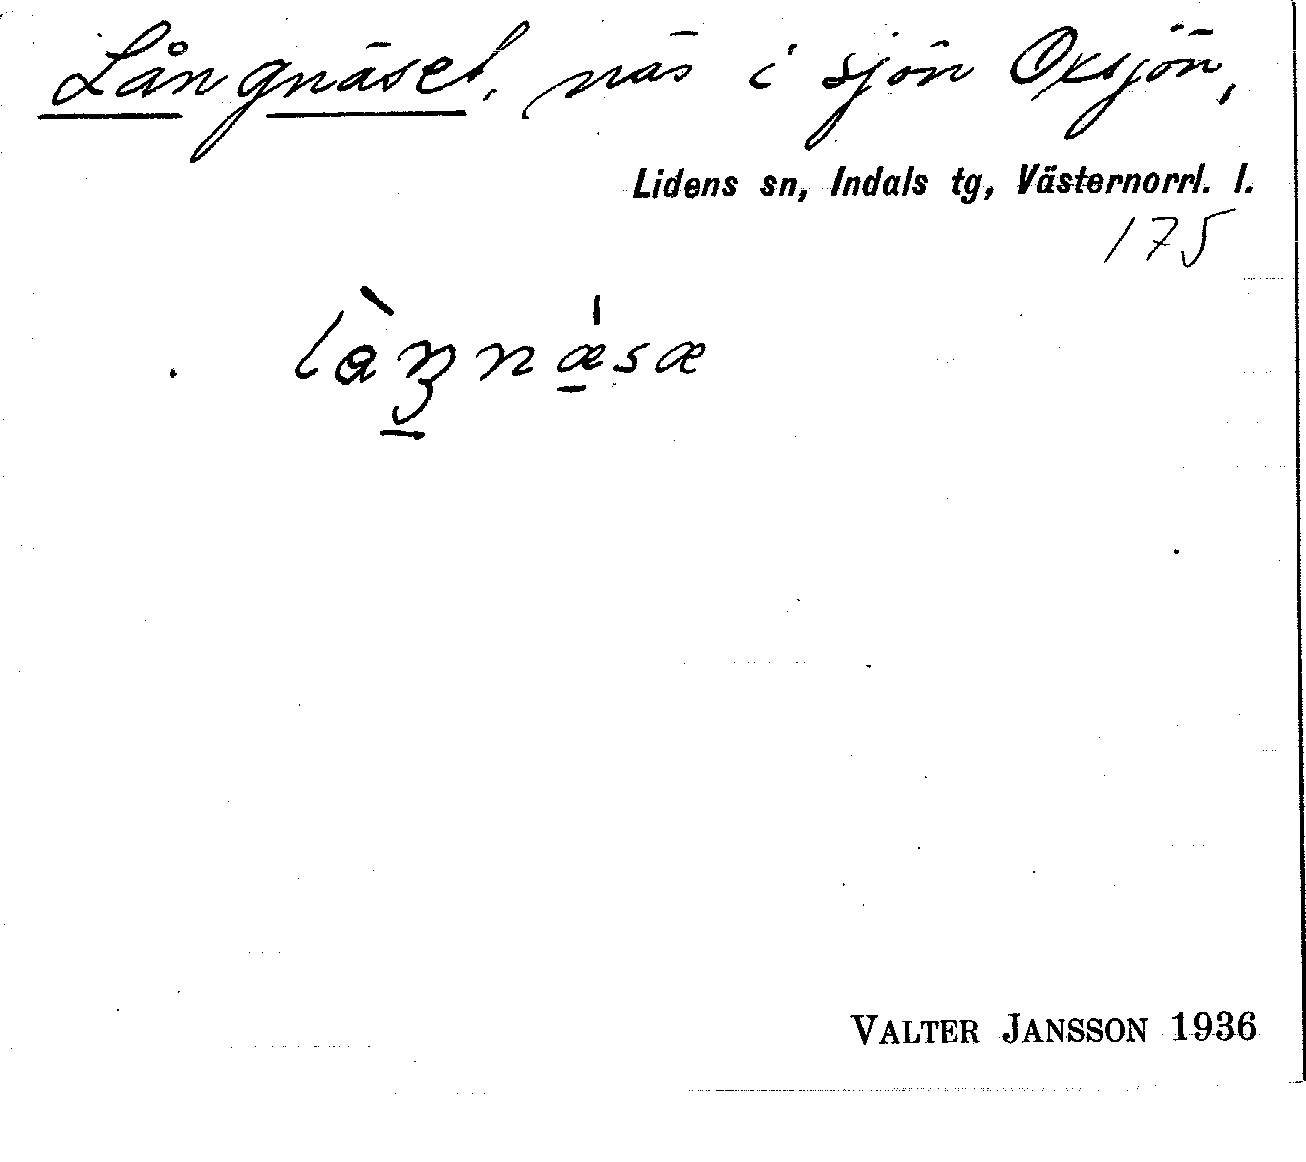 Långnäset, näs i sjön Oxsjön,
Lidens sn, Indals tg, Västernorrl. l.
175
VALTER JANSSON 1936